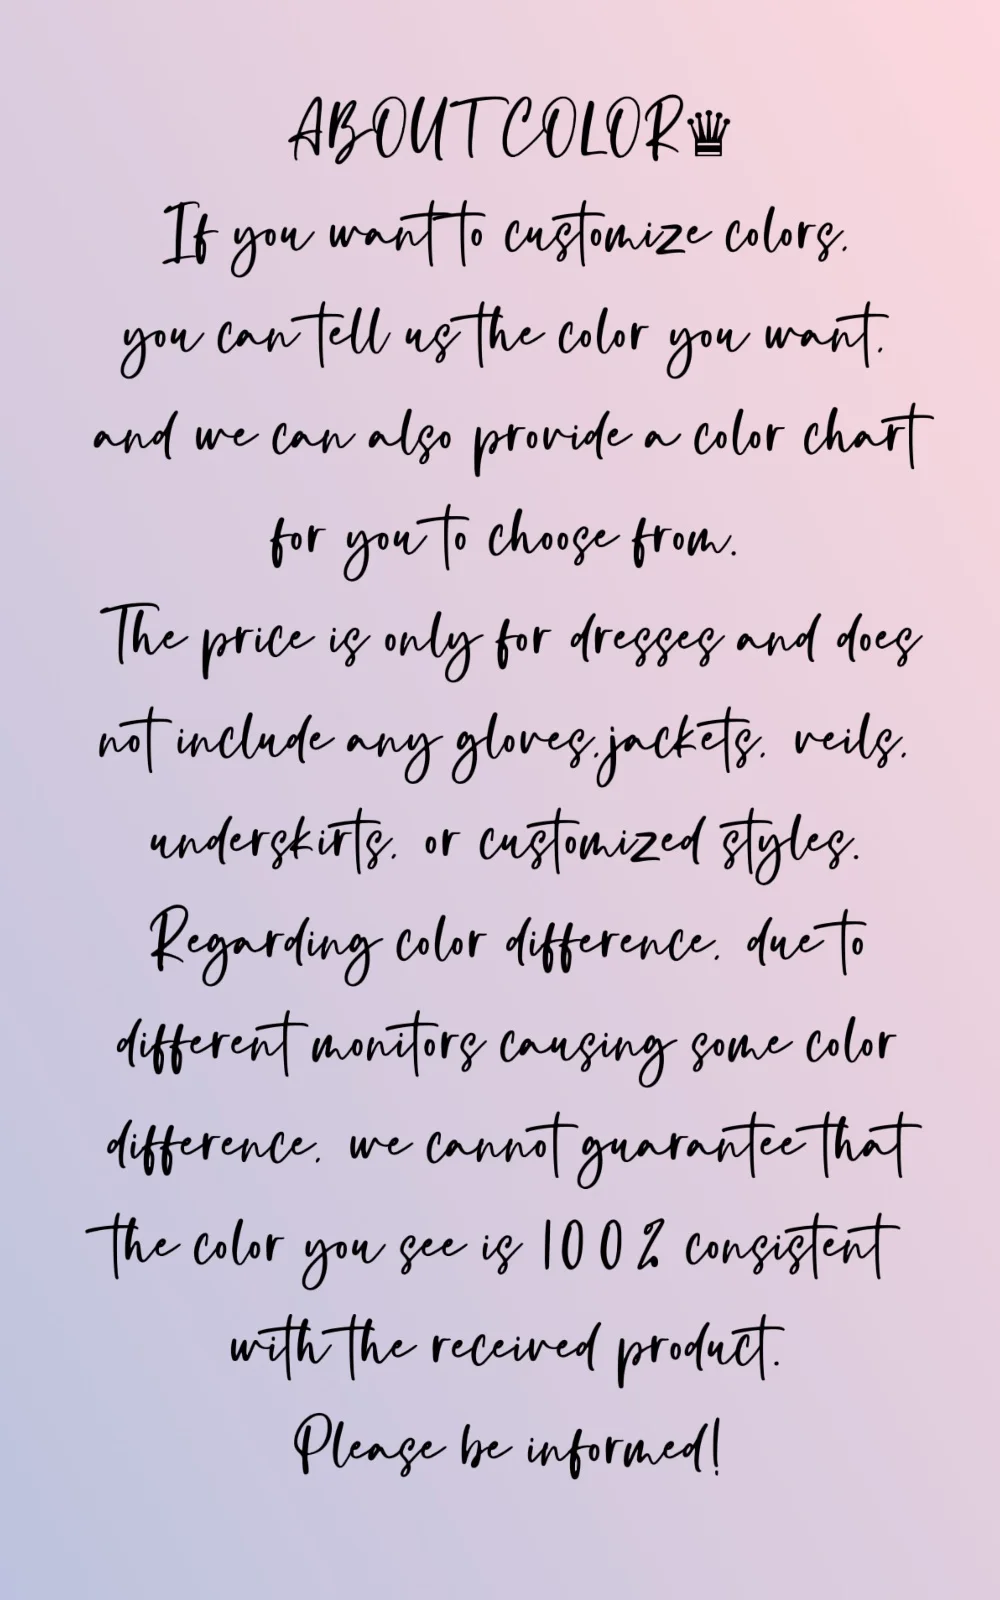 ABOUT COLOR♛
If you want to customize colors,
you can tell us the color you want,
and we can also provide a color chart
for you to choose from.
The price is only for dresses and does
not include any gloves,jackets, veils,
underskirts, or customized styles.
Regarding color difference, due to
different monitors causing some color
difference, we cannot guarantee that
the color you see is 100% consistent
with the received product.
Please be informed!